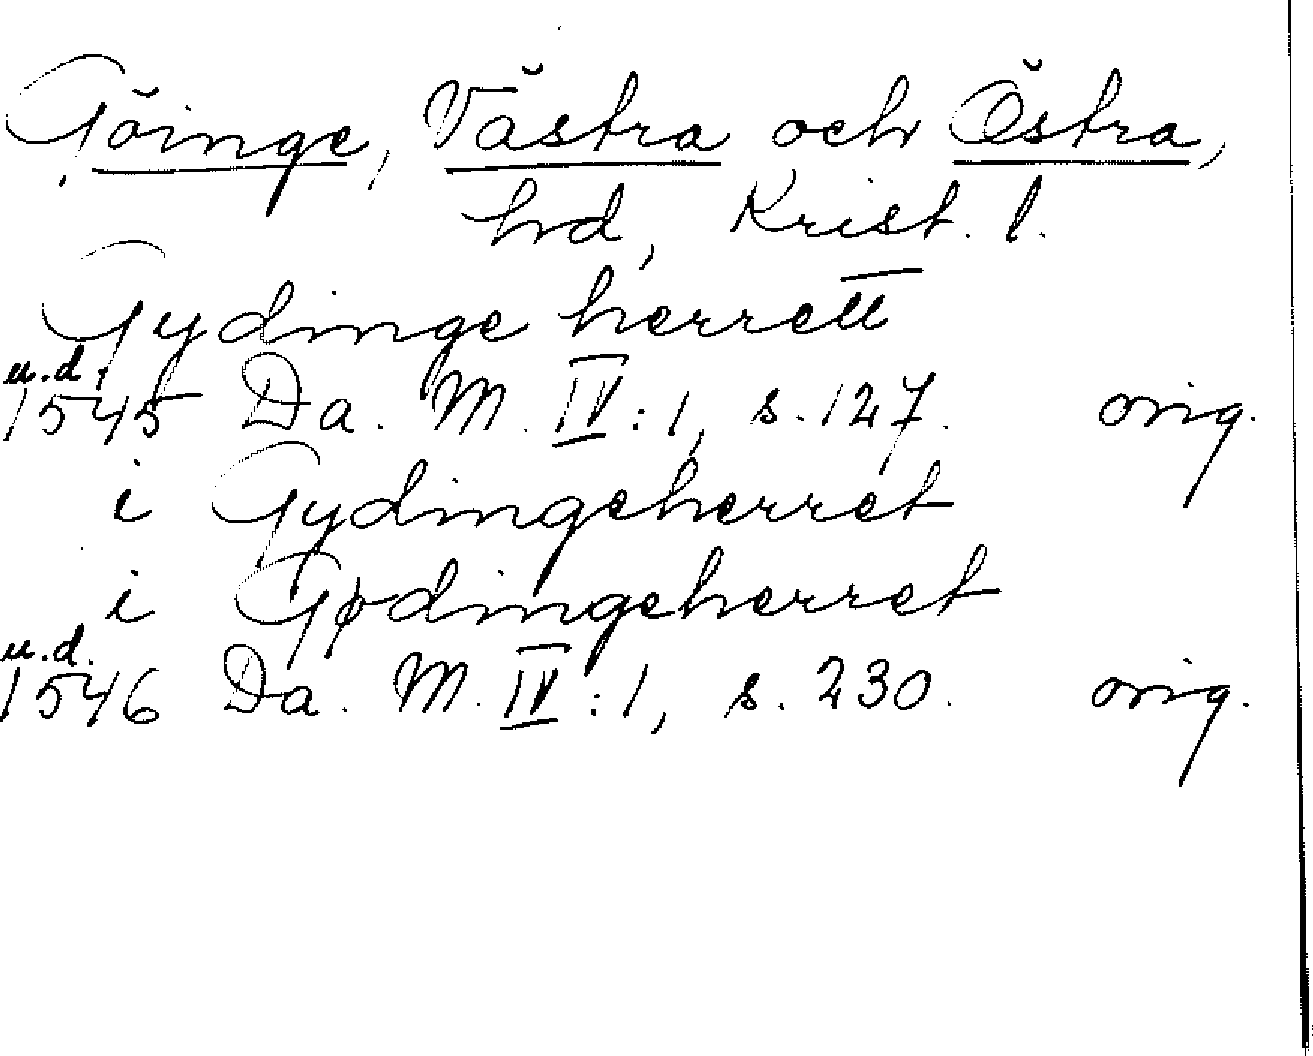 Göinge, Västra och Östra,
hd, Krist. l.
Gydinge herrett
u.d.
1545 Da. M. IV:1, s. 127. orig.
i Gydingeherret
i Gødingeherret
u.d.
1546 Da. M. IV:1, s. 230. orig.